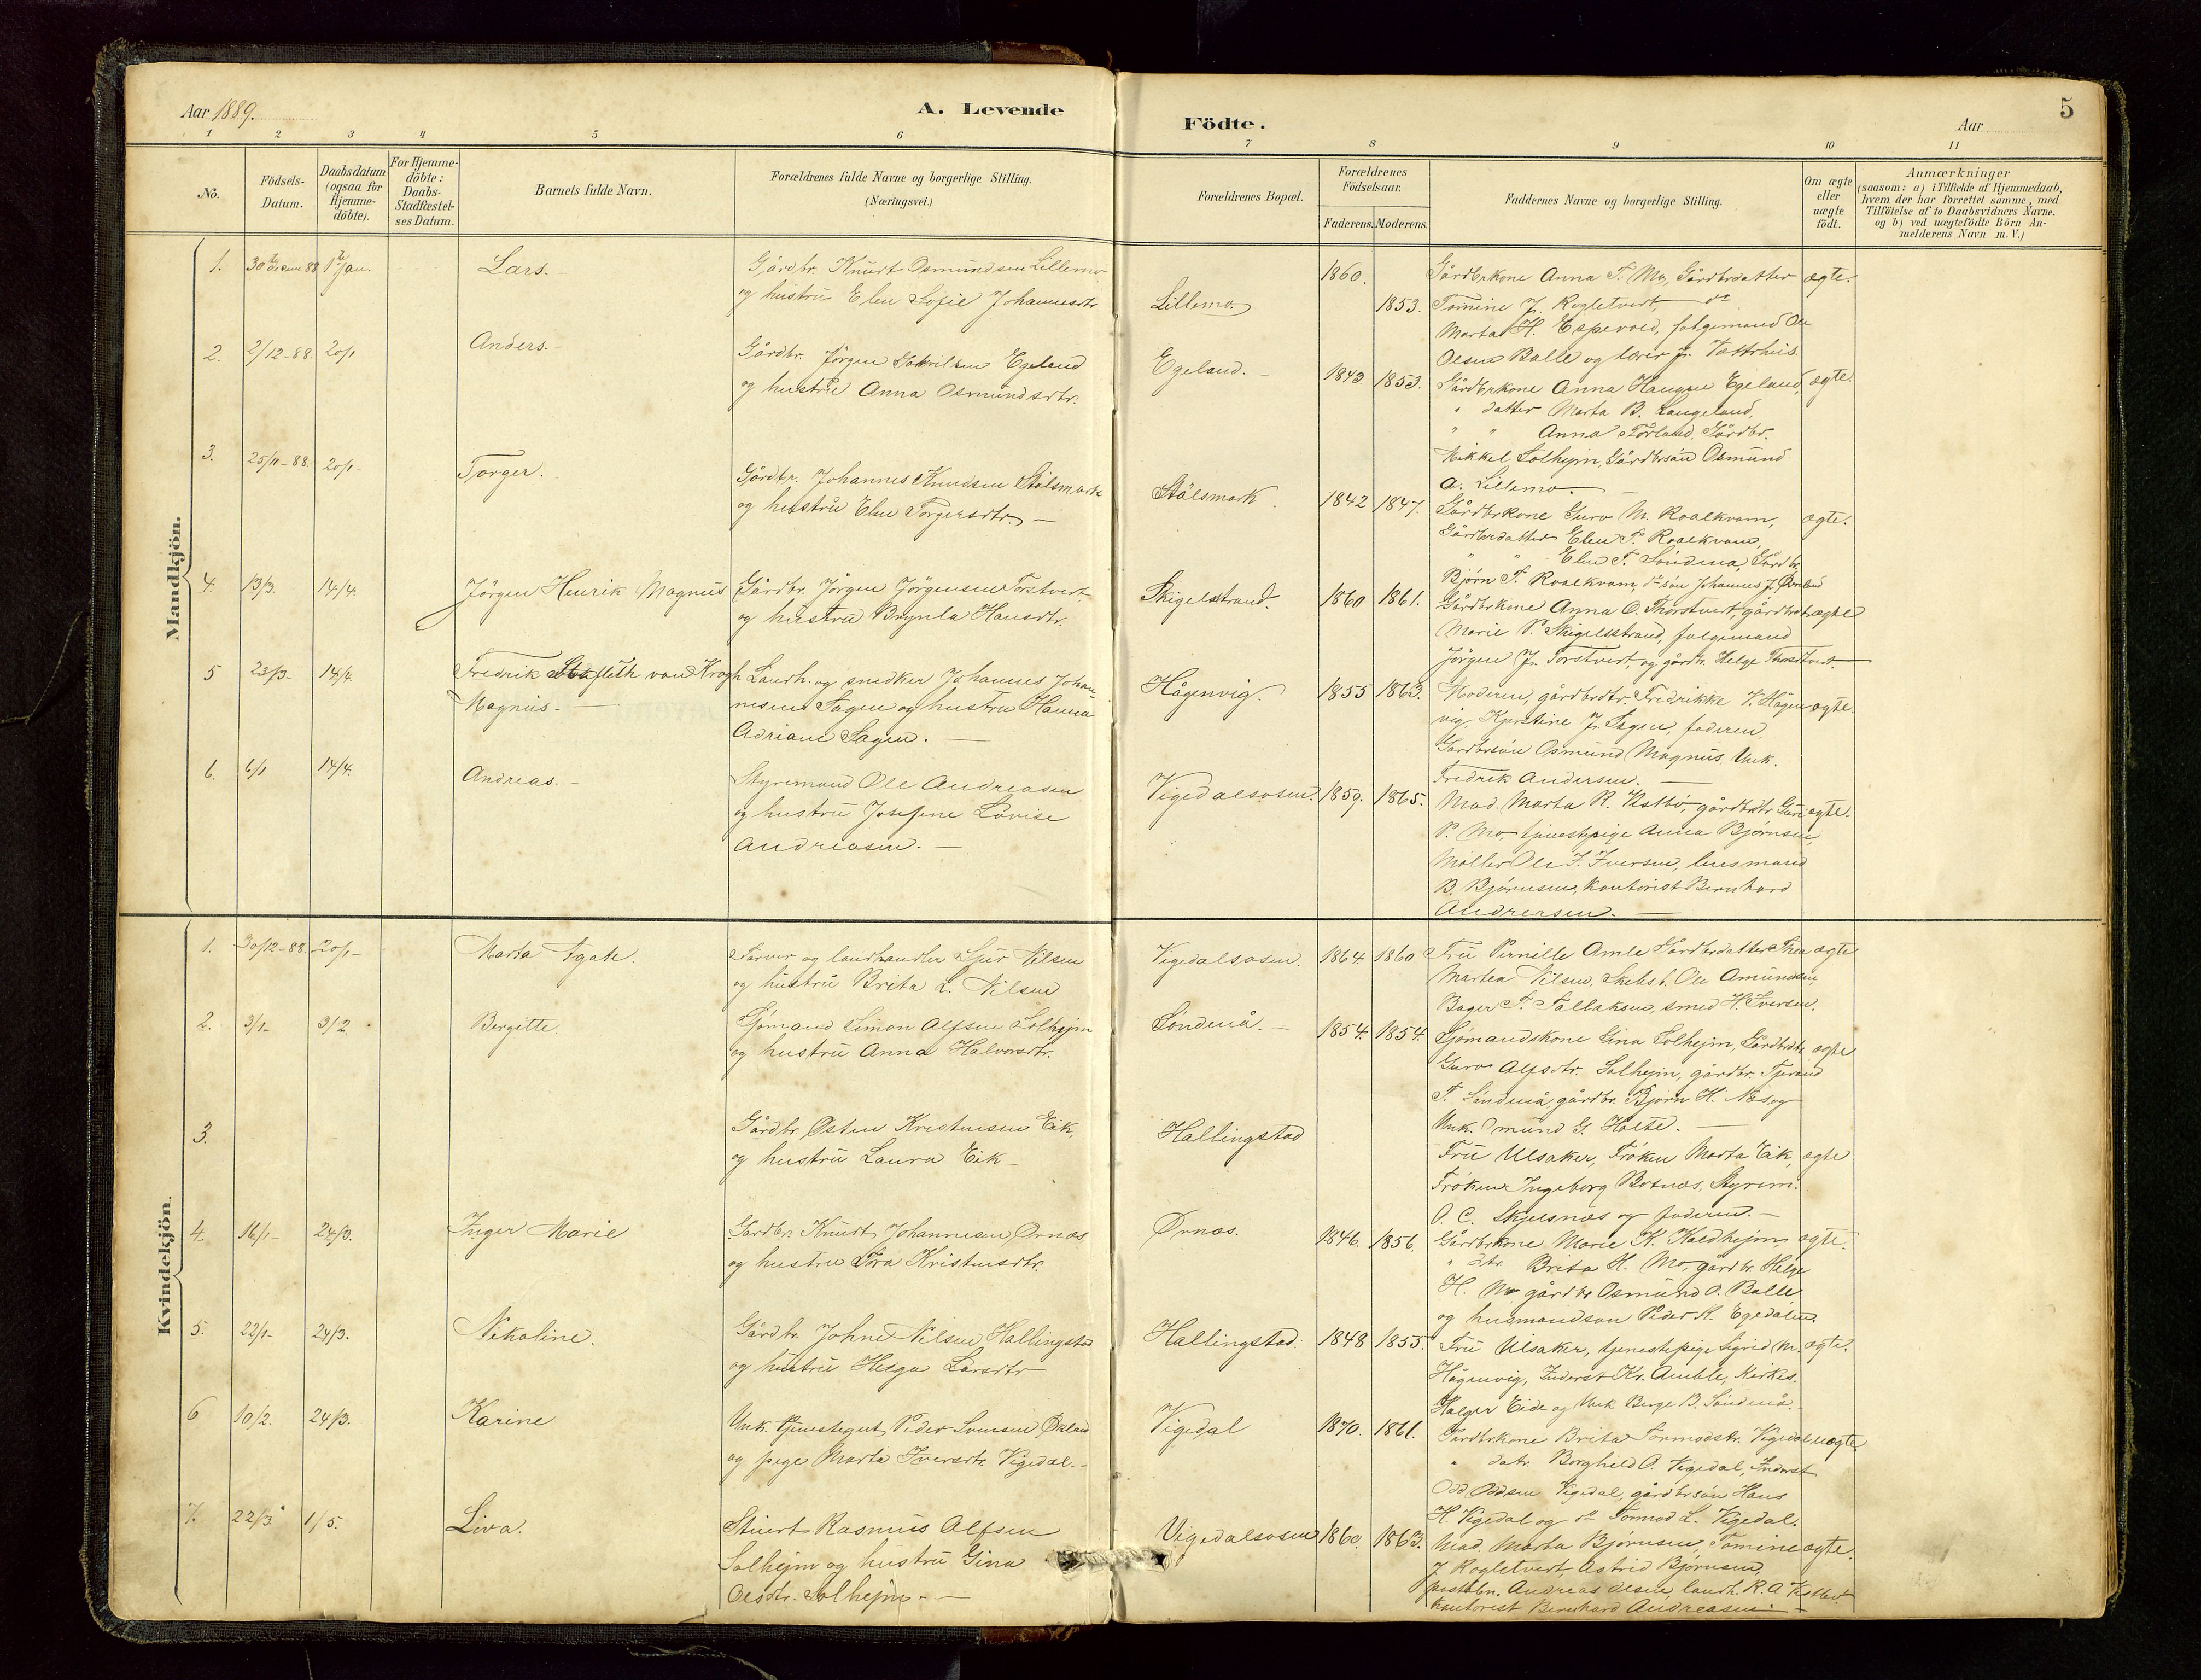 Aar 1889.
A. Levende
Födte.
Aar
5
1
2
3
4
5
6
7
8
9
10
11
No.
Födsels-
Datum.
Daabsdatum
(ogsaa for
Hjemme-
döbte).
For Hjemme-
döbte:
Daabs-
Stadfæstel-
ses Datum.
Barnets fulde Navn.
Forældrenes fulde Navne og borgerlige Stilling.
(Næringsvei.)
Forældrenes Bopæl.
Forældrenes
Födselsaar.
Faderens.
Moderens.
Faddernes Navne og borgerlige Stilling.
Om ægte
eller
uægte
födt.
Anmærkninger
(saasom: a) i Tilfælde af Hjemmedaab,
hvem der har forrettet samme, med
Tilföielse af to Daabsvidners Navne.
og b) ved uægtefödte Börn An-
melderens Navn m. V.)
Mandkjön.
1.
1 Jan.
Lars.
Gårdbr. Knudt Osmundsen Lillemo
og hustru Elen Sofie Johannesdtr
Lillemo.
1860.
1853.
Gårdbrkone Anna T. Mo, Gårdbrdatter
Tomine J. Rogletvedt, do
Marta H. Espevold, folgemand Ole
Olsen Balle og lærer Jr. Vastrhus.
ægte.
2.
2/12-88.
20/1
Anders.-
Gårdbr. Jörgen Gabrilsen Egeland
og hustru Anna Osmundsdtr.
Egeland.
1843
1853.
Gårdbrkone Anna Haugen Egeland,
" datter Marta B. Langeland,
" " Anna Förland, Gårdbr.
Mikkel Solhejm, Gårdbrsön Osmund
A. Lillemo.
ægte.
3.
25/11-88.
20/1
Torger.
Gårdbr. Johannes Knudsen Stölsmark
og hustru Elen Torgersdtr.-
Stölsmark.
1842
1847.
Gårdbrkone Guro M. Roalkvam,
Gårdbrdatter Elen T. Roalkvam,
" " Elen T. Söndenå, Gårdbr.
Björn T. Roalkvam, do sön Johannes J.
ægte.
4.
13/3.
14/4.
Jörgen Henrik Magnus
Gårdbr. Jörgen Jörgensen Torstvert
og hustru Brynla Hansdtr.
Skigelstrand.
1860
1861.
Gårdbrkone Anna O. Thorstvert, gårdbrdtr
Marie P. Skigelsstrand, folgemand
Jörgen J. Torstvert, og gårdbr. Helge Thorstvert.
ægte
5
23/3-
14/4.
Fredrik Stafleth von Krogh
Magnus.
Landh. og snedker Johannes Johan-
nesen Sagen og hustru Hanna
Adriane Sagen.
Hågenvig.
1855
1863.
Moderen, gårdbrdtr. Fredrikke V. Hågen-
vig, Kjerstine J. Sagen, faderen,
Gardbrsön Osmund Magnus, Unk.
Fredrik Andersen.
ægte.
6.
6/1
14/4.
Andreas.-
Styremand Ole Andreasen
og hustru Josefine Lovise
Andreasen.
Vigedalsosen.
1859.
1865.
Mad. Marta R. Vestbö, gårdbrdtr. Guri
P. Mo, tjenestepige Anna Björnsen,
Möller Ole J. Iversen, lensmand
B. Björnsen, kontorist Bernhard
Andreasen.
ægte.
Kvindekjön.
1.
30/12-88.
20/1-
Marta Agate.
Farver og landhandler Sjur Nilsen
og hustru Brita L. Nilsen
Vigedalsosen.
1864.
1860
Fru Pernille Amle, Gårdbrdatter Thea
Martea Nilsen, Skebsb. Ole Amundsen,
Bager T. Tallaksen, smed H. Iversen.
ægte
2.
3/1-
3/2.
Bergitte.
Sjömand Simon Alfsen Solhejm
og hustru Anna Halvorsdtr.
Söndenå.-
1854.
1854.
Sjömandskone Gina Solhejm, Gårdbrdtr
Guro Alfsdtr. Solhejm, gårdbr. Tjerand
T. Söndenå, gårdbr. Björn H. Næs og
Unk. Omund G. Holte.
ægte
3.
Gårdbr. Osten Kristensen Eik,
og hustru Laura Eik-
Hallingstad
Fru Ulsaker, Fröken Marta Eik,
Fröken Ingeborg Botnæs, Styrem.
O. C. Skjelsnæs og faderen.-
ægte
4.
16/1-
24/3.
Inger Marie
Gardbr. Knudt Johannesen Ornæs
og hustru Tora Kristensdtr.
Ornæs.
1846.
1856.
Gårdbrkone Marie K. Haldhejm,
" dtr. Brita H. Mo, gårdbr. Helge
H. Mo gårdbr Osmund O. Balle
og husmandsøn Peder K. Egedalen.
ægte.
5.
22/1-
24/3.
Nikoline.
Gårdbr. Johne Nilsen Hallingstad
og hustru Helga Larsdtr
Hallingstad.
1848
1855.
Fru Ulsaker, tjenestepige Sigrid M.
Hågenvig, Inderst Kr. Amble, Kirkes.
Holger Eide og Unk Berge B. Söndenå.
ægte.
6
10/2.
24/3.
Karine
Unk. tjenestegut Peder Svensen Økland
og pige Marta Iversdtr. Vigedal.-
Vigedal
1870.
1861.
Gårdbrkone Brita Tormodsdtr. Vigedal
" datr. Borghild O. Vigedal, Inderst
Odd Oddsen Vigedal, gårdbrsön Hans
H. Vigedal og do Tormod L. Vigedal.
uægte
7.
22/3
1/5.
Liva.
Stuert Rasmus Alfsen
Solhejm og hustru Gina
Olsdtr. Solhejm.-
Vigedalsosen
1860.
1863.
Mad. Marta Björnsen, Tomine
J Rogletvert, Astrid Björnsen,
postbn. Andreas Olsen landh. R. A Vestbö,
Kontorist Bernhard Andreasen.-
ægte.